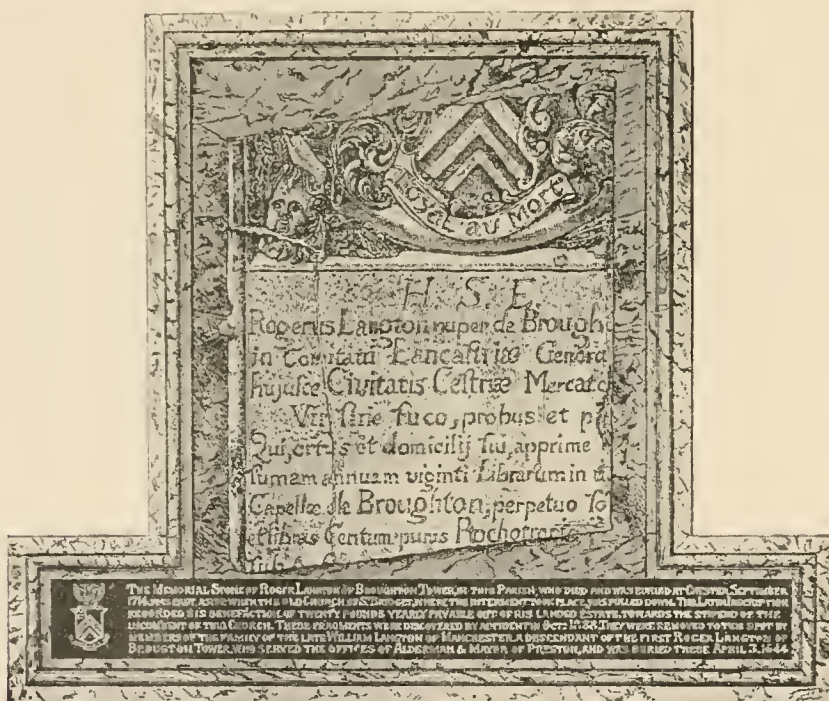 Loyal au Mort
H. S. E.
Rogerus Langton nuper de Brought
in Comitatu Lancastriæ Genero
hujusce Civitatis Cestriæ Mercato
Vir sine fuco, probus et p
Qui, ortus et domicilij sui, apprime
sumam annuam viginti Librarum in
Capellæ de Broughton, perpetuo
et libras Centum, puris
THE MEMORIAL STONE OF ROGER LANGTON OF BROUGHTON TOWER, IN THIS PARISH, WHO DIED AND WAS BURIED AT CHESTER, SEPTEMBER,
1714, WAS CAST ASIDE WHEN THE OLD CHURCH OF ST BRIDGET, WHERE THE INTERMENT TOOK PLACE, WAS PULLED DOWN. THE LATIN INSCRIPTION
RECORDED HIS BENEFACTION OF TWENTY POUNDS YEARLY PAYABLE OUT OF HIS LANDED ESTATE, TOWARDS THE STIPEND OF THE
INCUMBENT OF THIS CHURCH. THESE FRAGMENTS WERE DISCOVERED BY ACCIDENT IN OCT: 1888. THEY WERE REMOVED TO THIS SPOT BY
MEMBERS OF THE FAMILY OF THE LATE WILLIAM LANGTON OF MANCHESTER, A DESCENDANT OF THE FIRST ROGER LANGTON OF
BROUGTON TOWER, WHO SERVED THE OFFICES OF ALDERMAN & MAYOR OF PRESTON, AND WAS BURIED THERE APRIL 3, 1644